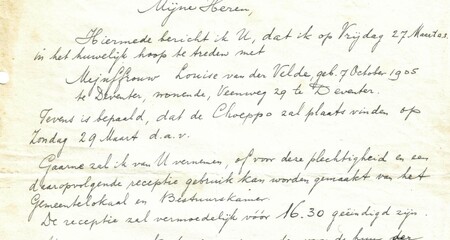 Mijne Heren,
Hiermede bericht ik U, dat ik op Vrijdag 27 Maart a.s.
in het huwelijk hoop te treden met
Mejuffrouw Louise van der Velde, geb. 7 October 1905
te Deventer, wonende, Veenweg 29 te Deventer.
Tevens is bepaald, dat de Choeppo zal plaats vinden op
Zondag 29 Maart d.a.v.
Gaarne zal ik van U vernemen, of voor deze plechtigheid en een
daaropvolgende receptie gebruik kan worden gemaakt van het
Gemeentelokaal en Bestuurskamer.
De receptie zal vermoedelijk vóór 16.30 geëindigd zijn.